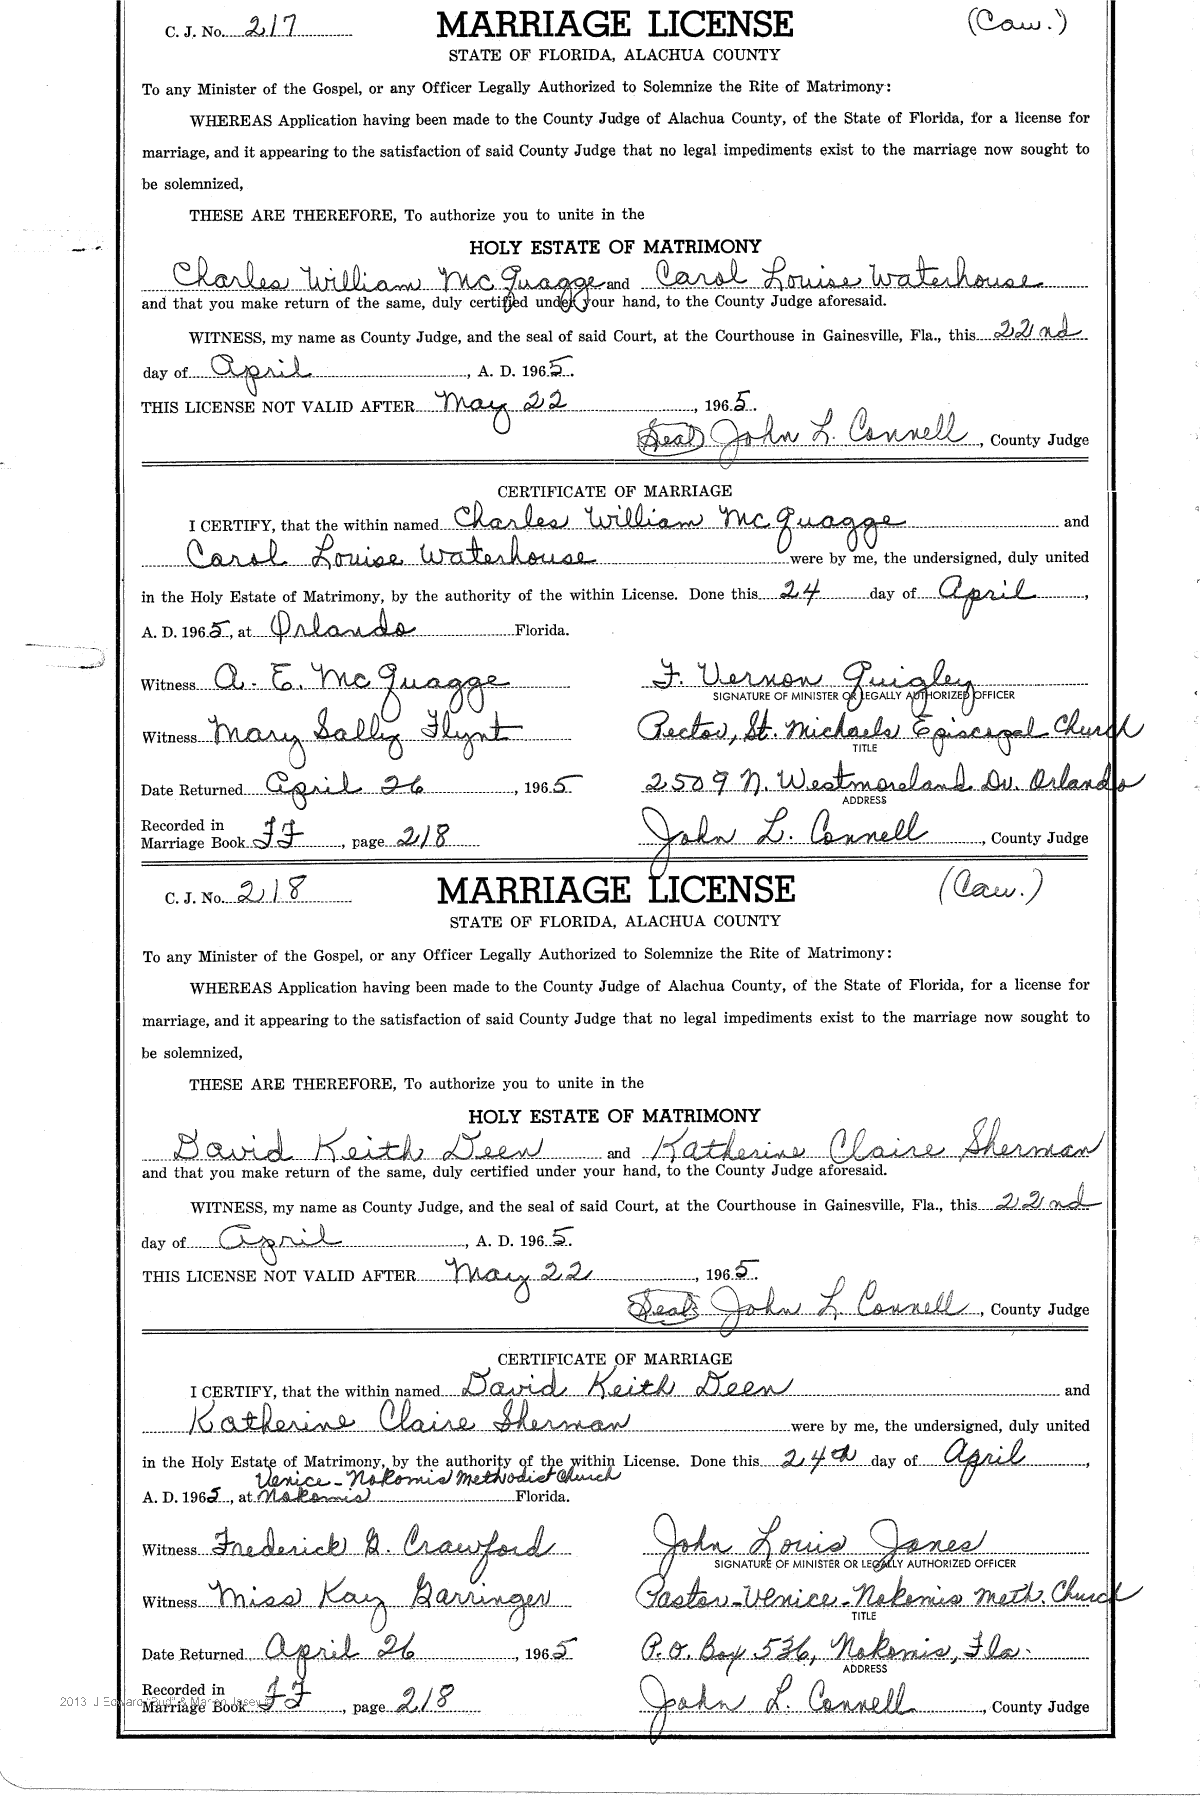 C. J. No. 217 MARRIAGE LICENSE (Caw.)
STATE OF FLORIDA, ALACHUA COUNTY
To any Minister of the Gospel, or any Officer Legally Authorized to Solemnize the Rite of Matrimony:
WHEREAS Application having been made to the County Judge of Alachua County, of the State of Florida, for a license for
marriage, and it appearing to the satisfaction of said County Judge that no legal impediments exist to the marriage now sought to
be solemnized,
THESE ARE THEREFORE, To authorize you to unite in the
HOLY ESTATE OF MATRIMONY
Charles William McQuagge and Carol Louise Waterhouse
and that you make return of the same, duly certified under your hand, to the County Judge aforesaid.
WITNESS, my name as County Judge, and the seal of said Court, at the Courthouse in Gainesville, Fla., this 22nd
day of April, A. D. 1965.
THIS LICENSE NOT VALID AFTER May 22, 1965.
(Seal) John L. Connell, County Judge
CERTIFICATE OF MARRIAGE
I CERTIFY, that the within named Charles William McQuagge and
Carol Louise Waterhouse were by me, the undersigned, duly united
in the Holy Estate of Matrimony, by the authority of the within License. Done this 24 day of April,
A. D. 1965, at Orlando Florida.
Witness A. E. McQuagge F. Vernon Quigley
SIGNATURE OF MINISTER OR LEGALLY AUTHORIZED OFFICER
Witness Mary Sally Flynt Rector, St. Michaels Episcopal Church
TITLE
Date Returned April 26, 1965 2509 N. Westmoreland Dr. Orlando
ADDRESS
Recorded in
Marriage Book FF, page 218 John L. Connell, County Judge
C. J. No. 218 MARRIAGE LICENSE (Caw.)
STATE OF FLORIDA, ALACHUA COUNTY
To any Minister of the Gospel, or any Officer Legally Authorized to Solemnize the Rite of Matrimony:
WHEREAS Application having been made to the County Judge of Alachua County, of the State of Florida, for a license for
marriage, and it appearing to the satisfaction of said County Judge that no legal impediments exist to the marriage now sought to
be solemnized,
THESE ARE THEREFORE, To authorize you to unite in the
HOLY ESTATE OF MATRIMONY
David Keith Deen and Katherine Claire Sherman
and that you make return of the same, duly certified under your hand, to the County Judge aforesaid.
WITNESS, my name as County Judge, and the seal of said Court, at the Courthouse in Gainesville, Fla., this 22nd
day of April, A. D. 1965.
THIS LICENSE NOT VALID AFTER May 22, 1965.
(Seal) John L. Connell, County Judge
CERTIFICATE OF MARRIAGE
I CERTIFY, that the within named David Keith Deen and
Katherine Claire Sherman were by me, the undersigned, duly united
in the Holy Estate of Matrimony, by the authority of the within License. Done this 24th day of April,
Venice-Nokomis Methodist Church
A. D. 1965, at Nokomis Florida.
Witness Frederick G. Crawford John Louis Janes
SIGNATURE OF MINISTER OR LEGALLY AUTHORIZED OFFICER
Witness Miss Kay Barringer Pastor-Venice-Nokomis Meth. Church
TITLE
Date Returned April 26, 1965 P.O. Box 536, Nokomis, Fla.
ADDRESS
Recorded in
2013 J Edward "Bud" & Marion
Marriage Book FF, page 218 John L. Connell, County Judge